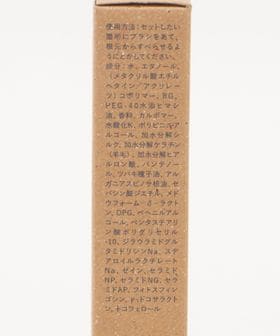 使用方法：セットしたい
箇所にブラシをあて、
根元からすべらせるよ
うにとかしてください。
成分：水、エタノール、
（メタクリル酸エチル
ベタイン／アクリレー
ツ）コポリマー、BG、
PEG-40水添ヒマシ
油、香料、カルボマー、
水酸化K、ポリビニルア
ルコール、加水分解シ
ルク、加水分解ケラチン
（羊毛）、加水分解ヒア
ルロン酸、パンテノー
ル、ツバキ種子油、アル
ガニアスピノサ核油、セ
バシン酸ジエチル、メド
ウフォーム-δ-ラクト
ン、DPG、ベヘニルアル
コール、ペンタステアリ
ン酸ポリグリセリル
-10、ジラウラミドグル
タミドリシンNa、ステ
アロイルラクチレート
Na、ゼイン、セラミド
NP、セラミドNG、セラ
ミドAP、フィトスフィン
ゴシン、γ-ドコサラクト
ン、トコフェロール